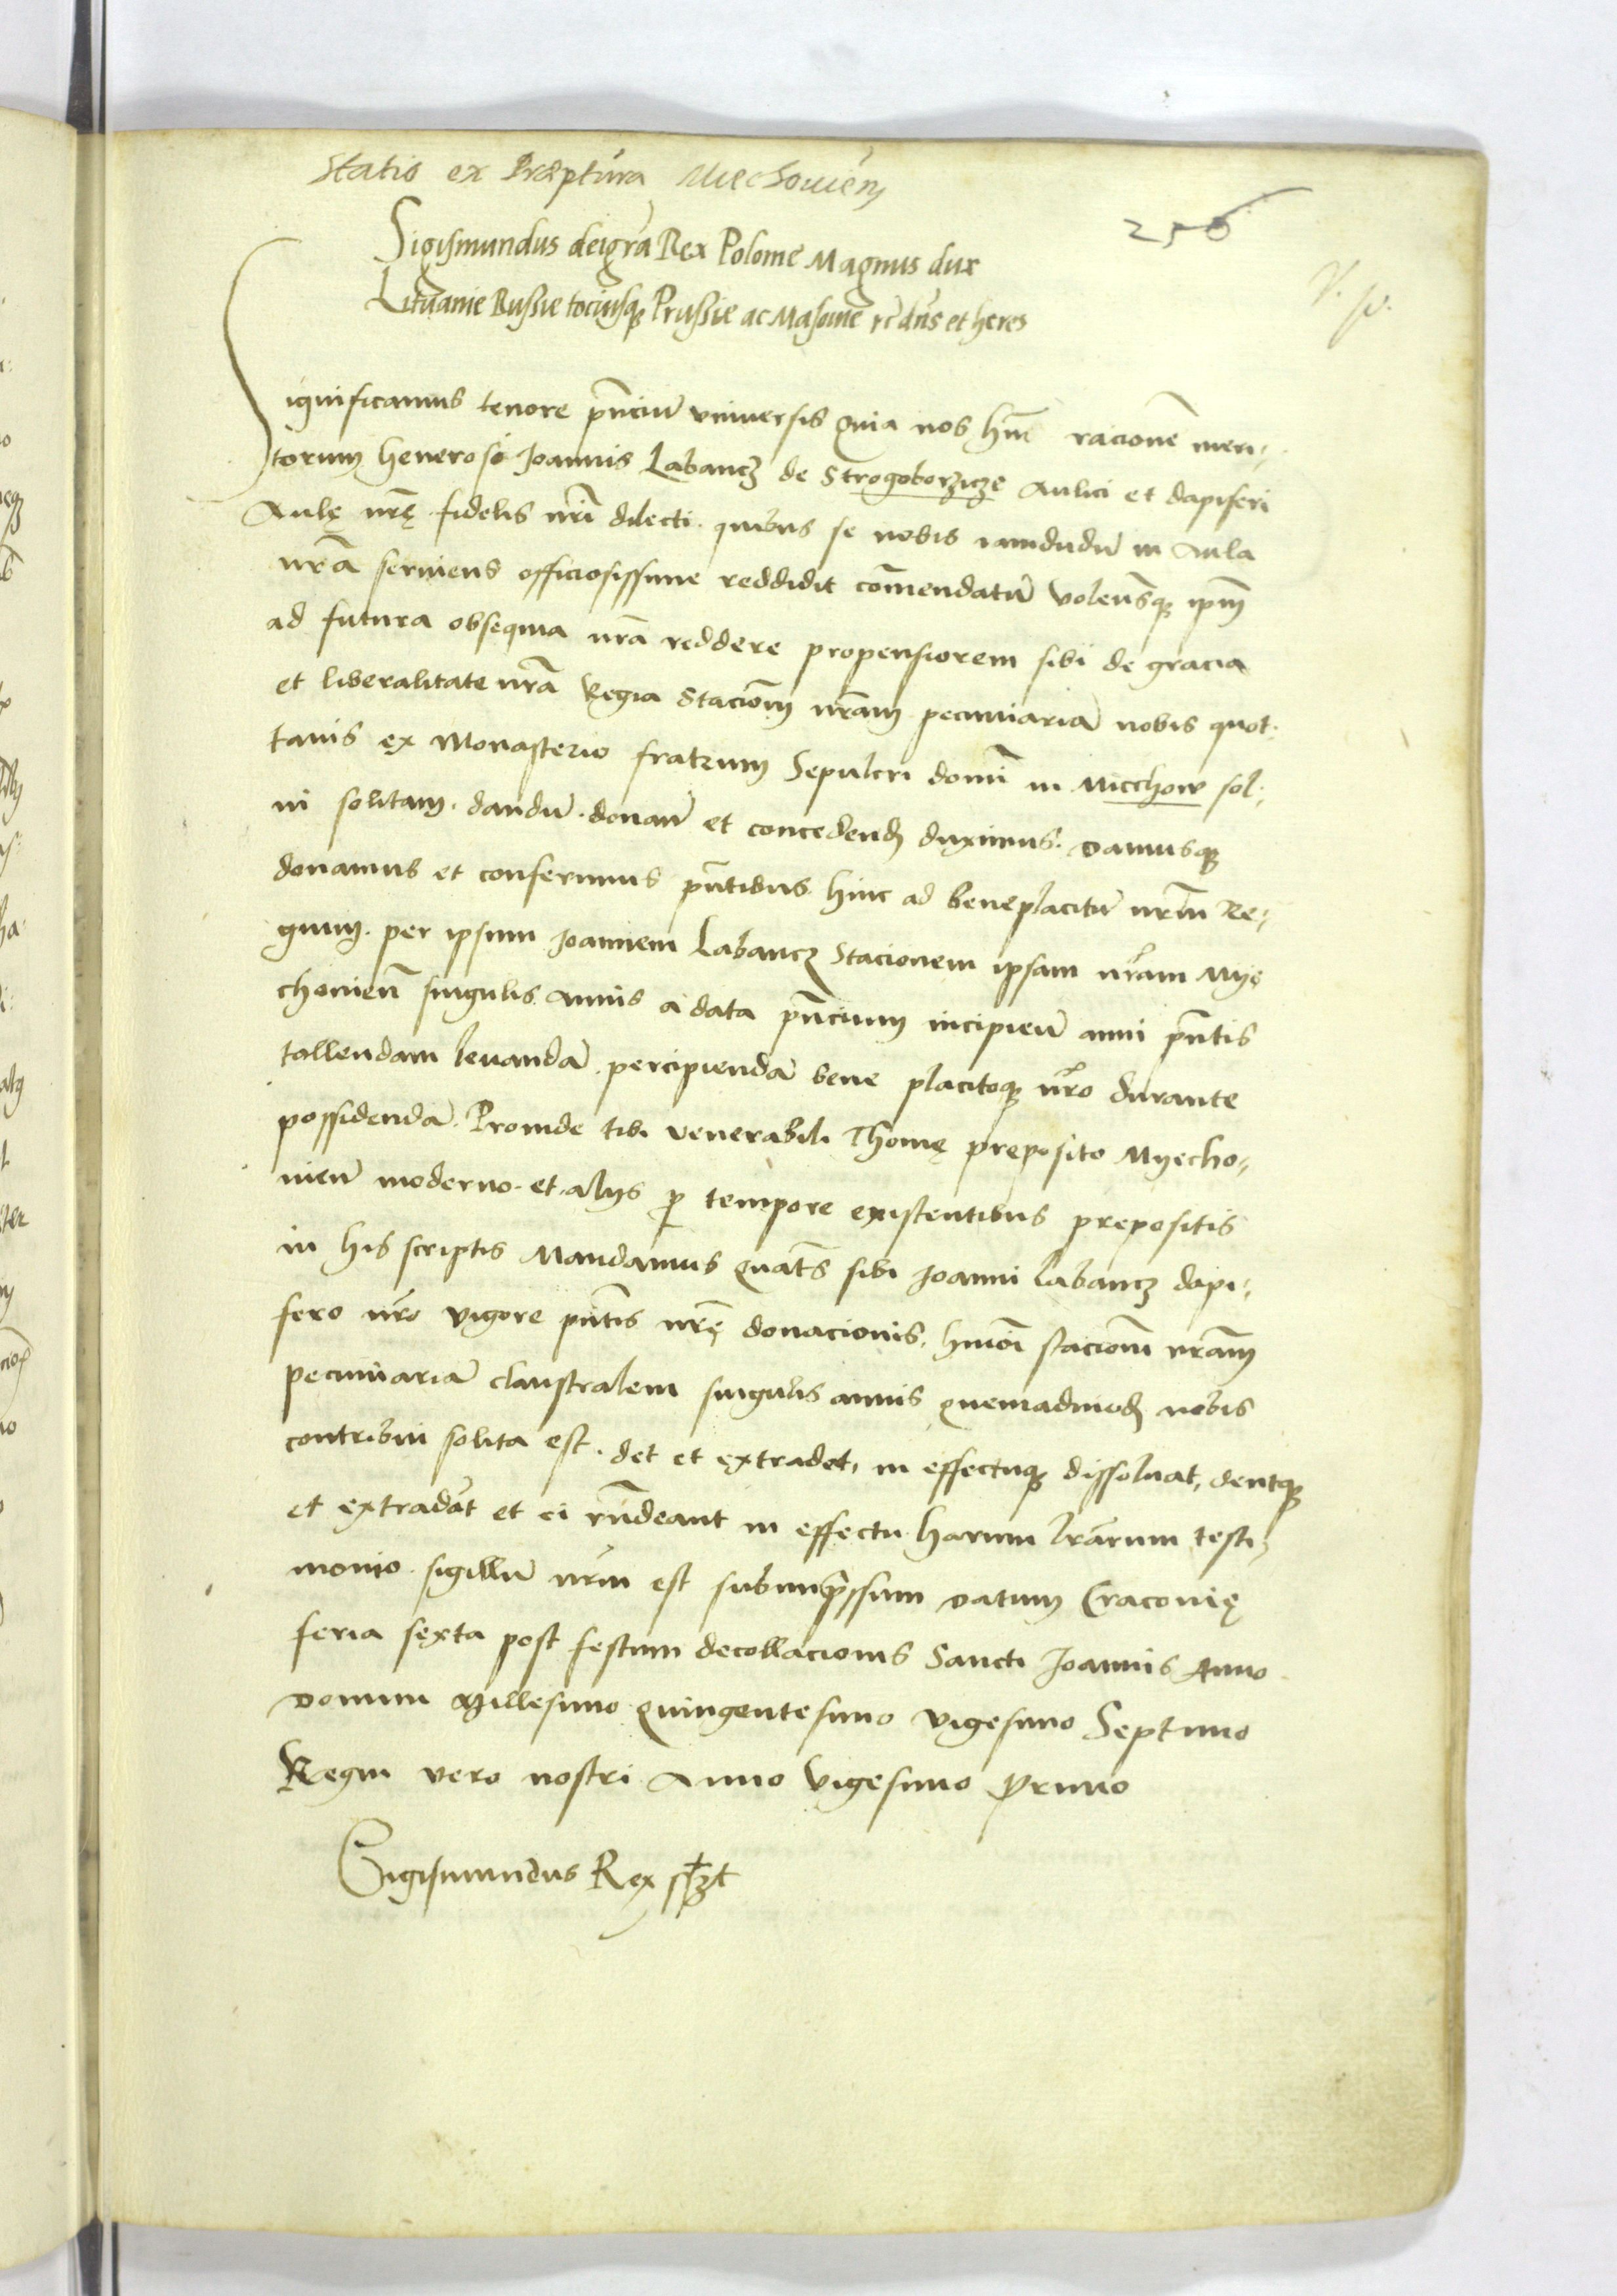 Statio ex Præptura Mechouień
256
Sigismundus dei grã Rex Polonie Magnus dux
Lituanie Russie tociusq; Prussie ac Masouie rc̃ dñs et heres
ignificamus tenore pñciũ vniuersis Quia nos hñtẽ racionẽ meri„
torum Generosi Joannis Labancz de Strogoborzicze Aulici et dapiferi
Aulę nrę fidelis nri dilecti. quibus se nobis iamdudũ in Aula
nrã seruiens officiosissime reddidit cõmendatũ Volen̄sq; ipm̃
ad futura obsequia nrã reddere propensiorem sibi de gracia
et liberalitate nrã Regia Stacionẽ nrãm pecuniariã nobis quot.
tanis ex Monasterio fratrum Sepulcri domi͂ in Miechow sol„
ui solitam. dandũ. donañ et concedend̃ duximus. Damusq;
donamus et conferimus pñtibus hinc ad beneplacitũ nrm̃ Re„
gium. per ipsum Joannem Labancz Stacionem ipsam nrãm Mye
chouien̄ singulis Annis a data pñcium incipień anni pñtis
tollendam leuandã percipiendã bene placitoq; nrõ durante
possidendã. Proinde tibi venerabili Thomę preposito Myecho„
uień moderno. et alijs p tempore existentibus prepositis
in his scriptis Mandamus Quat̃s sibi Joanni Labancz dapi„
fero nrõ vigore pñtis nrę donacionis. hmõi stacionẽ nrãm
pecuniariã claustralem singulis annis quemadmod̃ nobis
contribui solita est. det et extradet, in effectuq; dissoluat, dentq;
et extradãt et ei rñdeant in effectu. Harum lrãrum testi„
monio. sigillũ nrm̃ est subimp̃ssum Datum Cracouię
feria sexta post festum decollacionis Sancti Joannis Anno
Domini Millesimo Quingentesimo Vigesimo Septimo
Regni vero nostri Anno Vigesimo Primo
Sigismundus Rex sszt